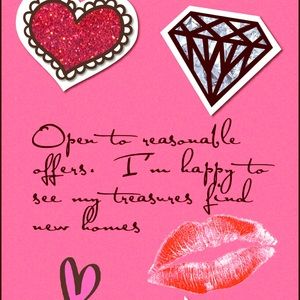 Open to reasonable
offers. I'm happy to
see my treasures find
new homes